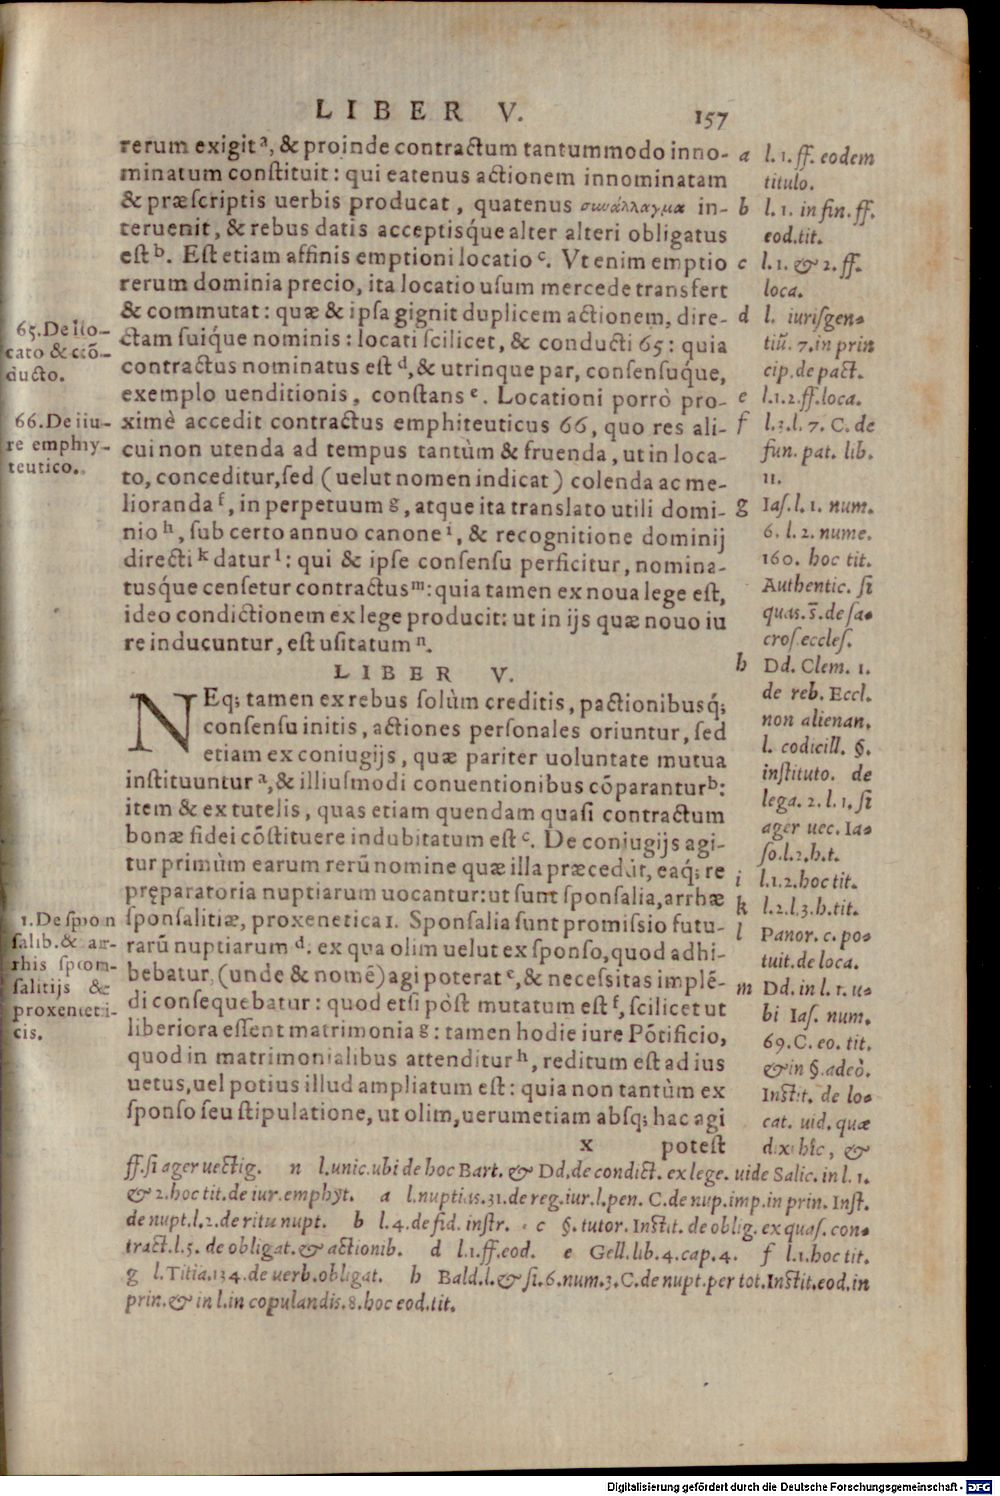 LIBER V. 157
rerum exigit ᵃ, & proinde contractum tantummodo inno-
minatum constituit: qui eatenus actionem innominatam
& præscriptis uerbis producat, quatenus συνάλλαγμα in-
teruenit, & rebus datis acceptisq́ue alter alteri obligatus
est ᵇ. Est etiam affinis emptioni locatio ᶜ. Vt enim emptio
rerum dominia precio, ita locatio usum mercede transfert
& commutat: quæ & ipsa gignit duplicem actionem, dire-
ctam suiq́ue nominis: locati scilicet, & conducti 65: quia
contractus nominatus est ᵈ, & utrinque par, consensuq́ue,
exemplo uenditionis, constans ᵉ. Locationi porrò pro-
ximè accedit contractus emphiteuticus 66, quo res ali-
cui non utenda ad tempus tantùm & fruenda, ut in loca-
to, conceditur, sed (uelut nomen indicat) colenda ac me-
lioranda ᶠ, in perpetuum g, atque ita translato utili domi-
nio ʰ, sub certo annuo canone ⁱ, & recognitione dominij
directi ᵏ datur ˡ: qui & ipse consensu perficitur, nomina-
tusq́ue censetur contractus ᵐ: quia tamen ex noua lege est,
ideo condictionem ex lege producit: ut in ijs quæ nouo iu
re inducuntur, est usitatum ⁿ.
65. De lo-
cato & cõ-
ducto.
66. De iu-
re emphy-
teutico.
LIBER V.
NEq; tamen ex rebus solùm creditis, pactionibusq́;
consensu initis, actiones personales oriuntur, sed
etiam ex coniugijs, quæ pariter uoluntate mutua
instituuntur ᵃ, & illiusmodi conuentionibus cõparantur ᵇ:
item & ex tutelis, quas etiam quendam quasi contractum
bonæ fidei cõstituere indubitatum est ᶜ. De coniugijs agi-
tur primùm earum rerũ nomine quæ illa præcedũt, eaq́; re
pręparatoria nuptiarum uocantur: ut sunt sponsalia, arrhæ
sponsalitiæ, proxenetica 1. Sponsalia sunt promissio futu-
rarũ nuptiarum ᵈ. ex qua olim uelut ex sponso, quod adhi-
bebatur, (unde & nomẽ) agi poterat ᵉ, & necessitas implẽ-
di consequebatur: quod etsi pòst mutatum est ᶠ, scilicet ut
liberiora essent matrimonia g: tamen hodie iure Põtificio,
quod in matrimonialibus attenditur ʰ, reditum est ad ius
uetus, uel potius illud ampliatum est: quia non tantùm ex
sponso seu stipulatione, ut olim, uerumetiam absq; hac agi
x potest
1. De spon
salib. & ar-
rhis spon-
salitijs &
proxeneti-
cis.
a l. 1. ff. eodem
titulo.
b l. 1. in fin. ff.
eod. tit.
c l. 1. & 2. ff.
loca.
d l. iurisgen-
tiũ. 7. in prin
cip. de pact.
e l. 1. 2. ff. loca.
f l. 3. l. 7. C. de
fun. pat. lib.
11.
g Ias. l. 1. num.
6. l. 2. nume.
160. hoc tit.
Authentic. si
quas. s̄. de sa-
cros. eccles.
h Dd. Clem. 1.
de reb. Eccl.
non alienan.
l. codicill. §.
instituto. de
lega. 2. l. 1. si
ager uec. Ia-
so. l. 2. h. t.
i l. 1. 2. hoc tit.
k l. 2. l. 3. h. tit.
l Panor. c. po-
tuit. de loca.
m Dd. in l. 1. u-
bi Ias. num.
69. C. eo. tit.
& in §. adeò.
Instit. de lo-
cat. uid. quæ
dixi hîc, &
ff. si ager uectig. n l. unic. ubi de hoc Bart. & Dd. de condict. ex lege. uide Salic. in l. 1.
& 2. hoc tit. de iur. emphyt. a l. nuptias. 31. de reg. iur. l. pen. C. de nup. imp. in prin. Inst.
de nupt. l. 2. de ritu nupt. b l. 4. de fid. instr. c §. tutor. Instit. de oblig. ex quas. con-
tract. l. 5. de obligat. & actionib. d l. 1. ff. eod. e Gell. lib. 4. cap. 4. f l. 1. hoc tit.
g l. Titia. 134. de uerb. obligat. h Bald. l. & si. 6. num. 3. C. de nupt. per tot. Instit. eod. in
prin. & in l. in copulandis. 8. hoc eod. tit.
Digitalisierung gefördert durch die Deutsche Forschungsgemeinschaft - DFG